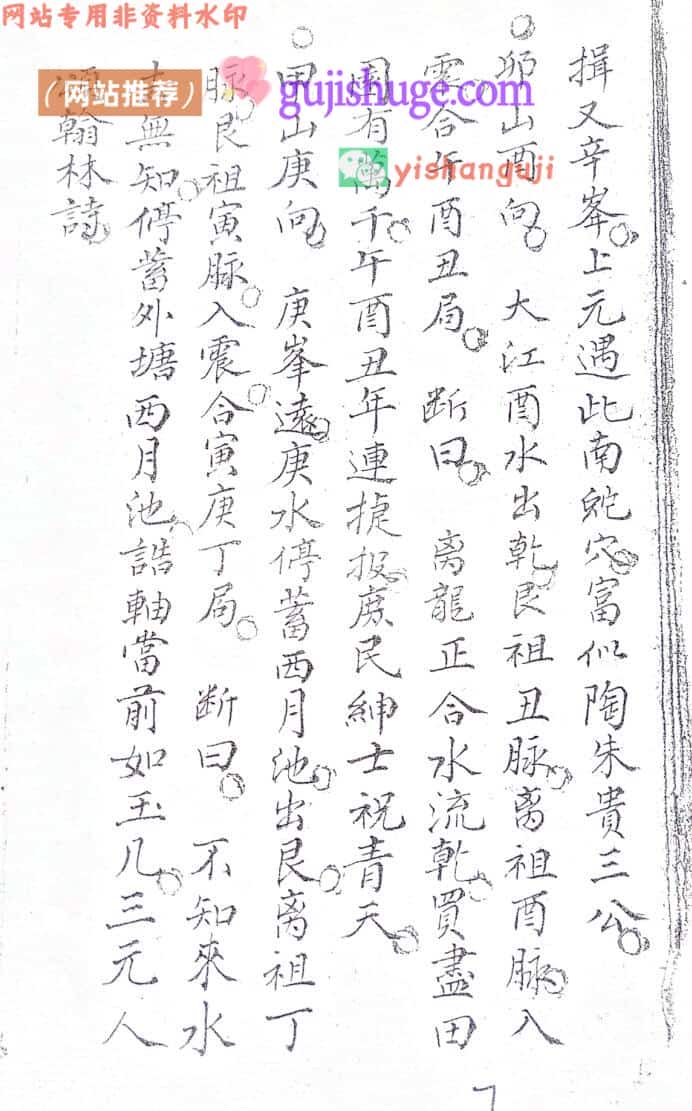 网站专用非资料水印
(网站推荐)
gujishuge.com
yishanguji
揖又辛峯。上元遇此南蛇穴。富似陶朱貴三公。
○卯山酉向。 大江酉水出乾。艮祖丑脉。离祖酉脉。入
震合午酉丑局。 断曰。 离龍正合水流乾。買盡田
園有萬千。午酉丑年連捷报。庶民紳士祝青天。
○甲山庚向。 庚峯遠。庚水停蓄西月池。出艮。离祖丁
脉。艮祖寅脉。入震。合寅庚丁局。 断曰。 不知來水
去無知。停蓄外塘西月池。誥軸當前如玉几。三元人
頌翰林詩。
7